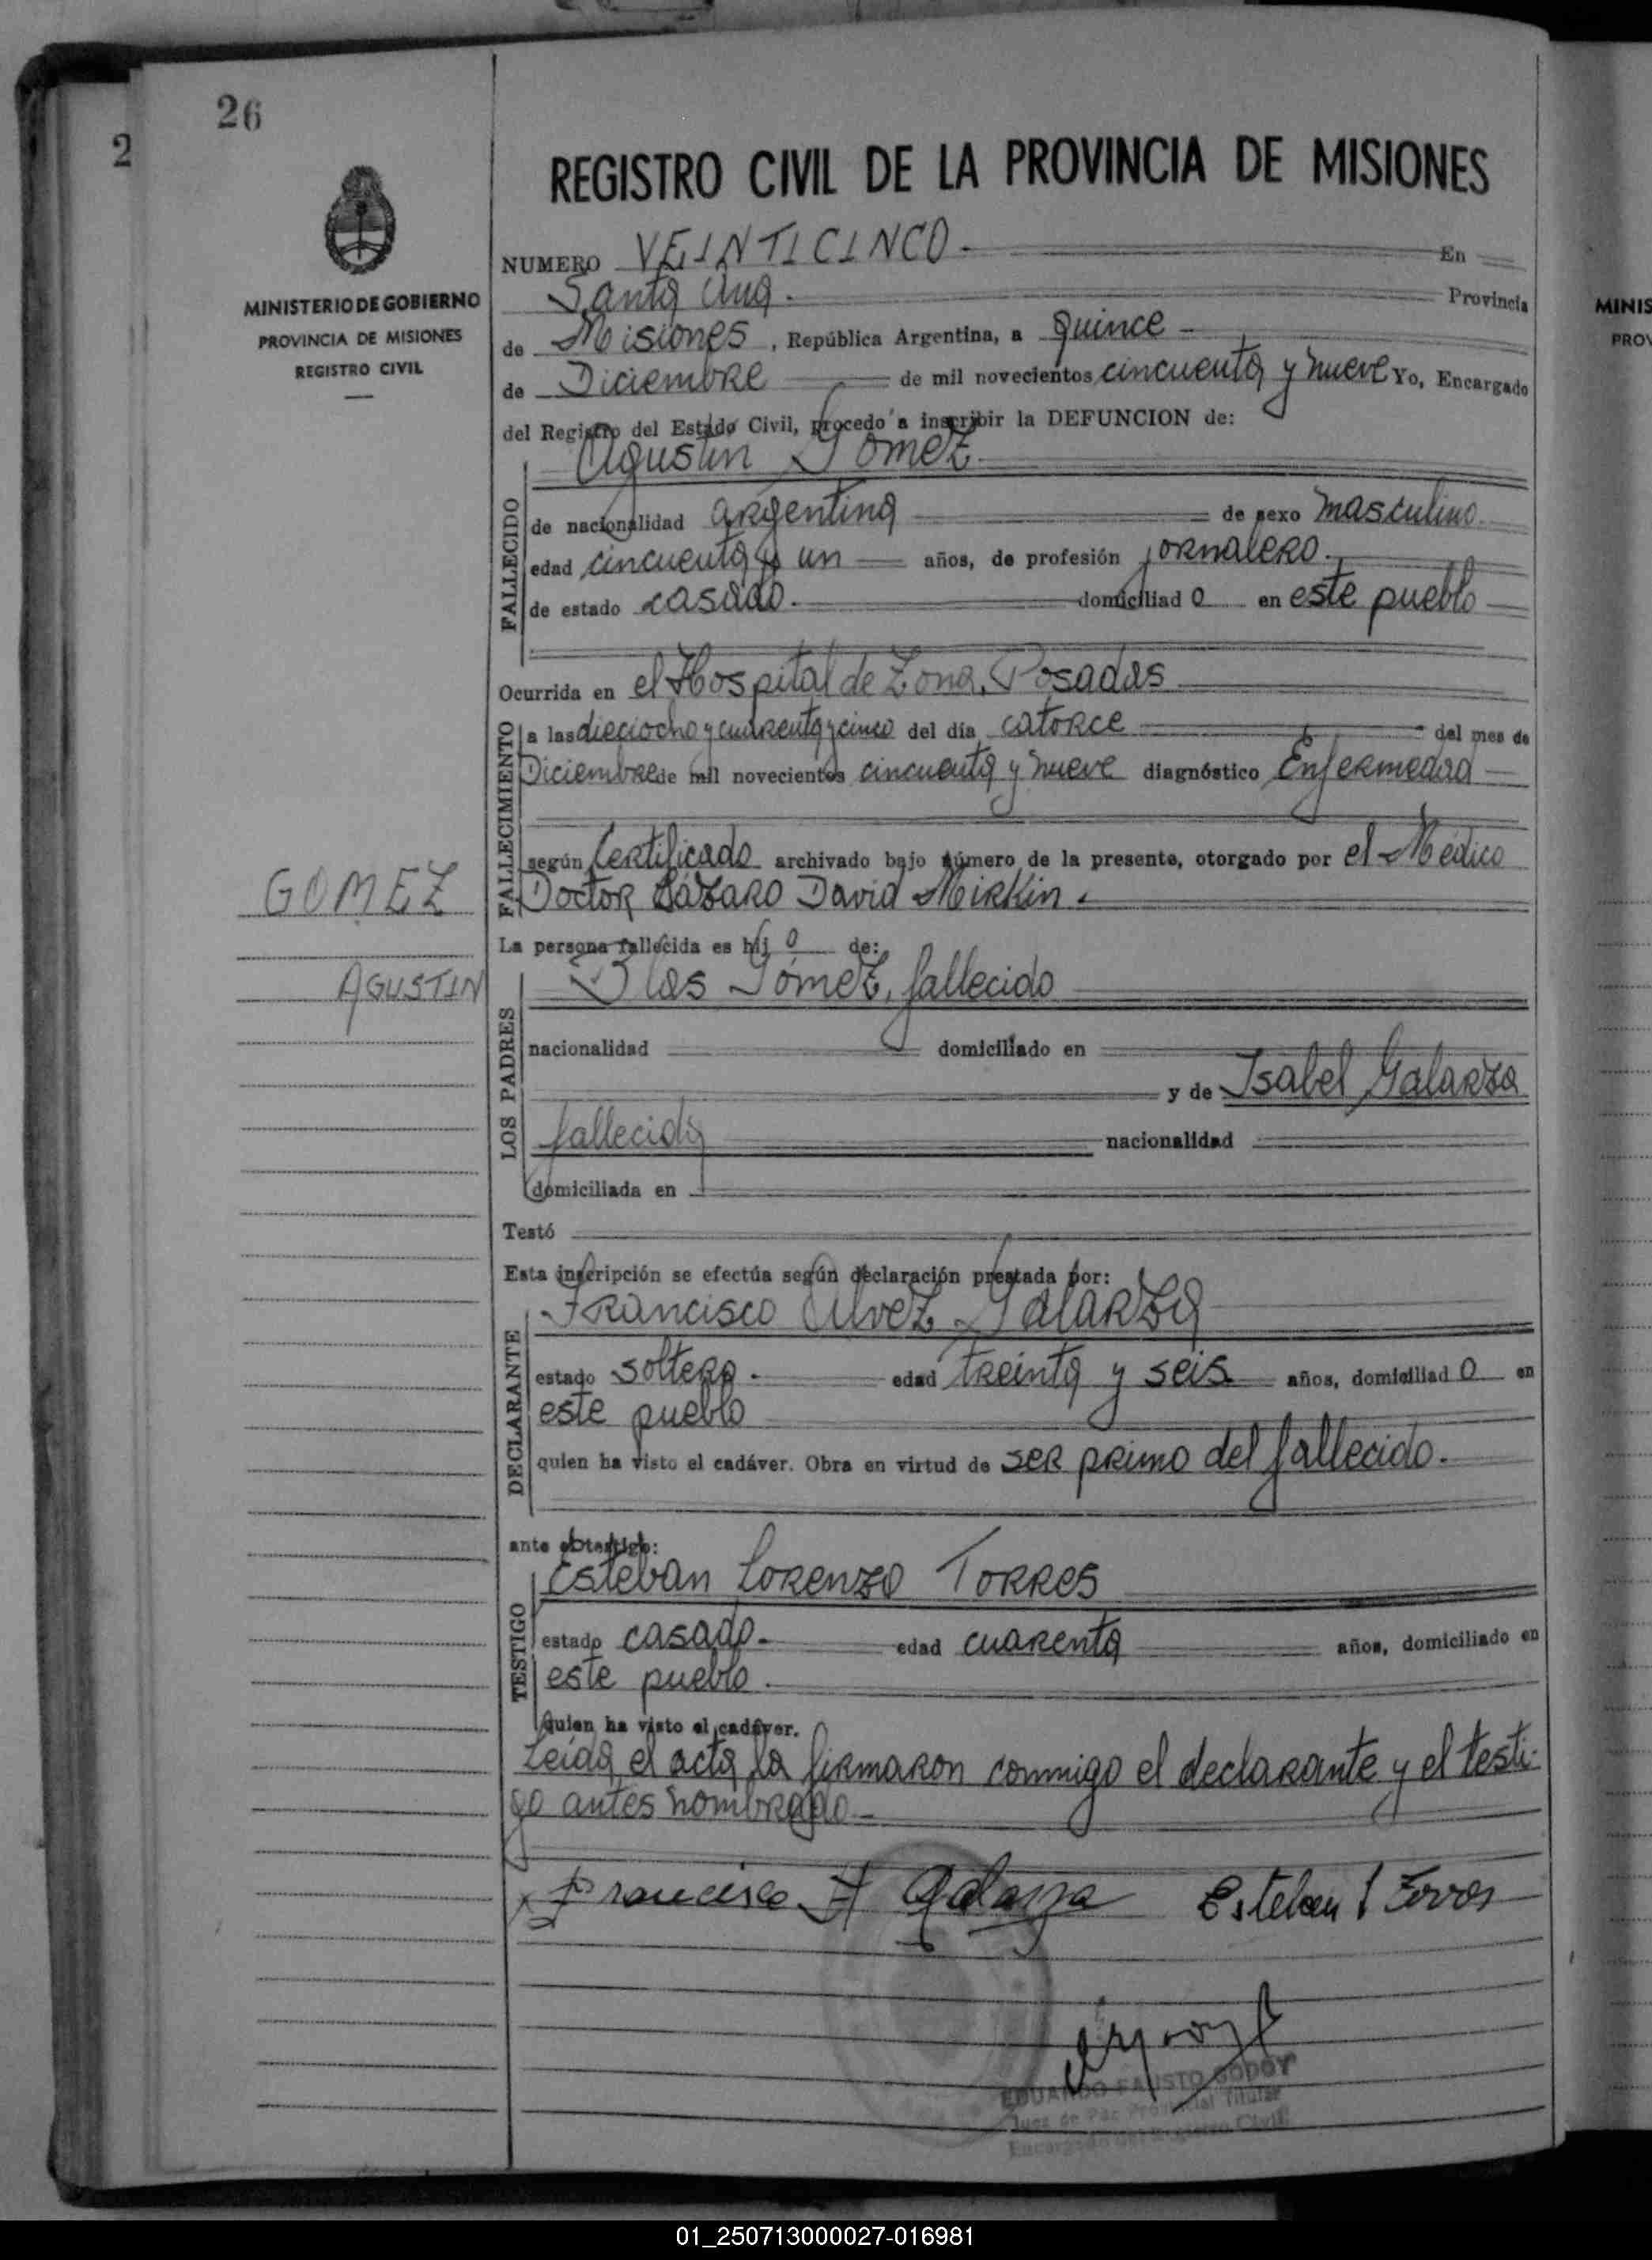 26
2
REGISTRO CIVIL DE LA PROVINCIA DE MISIONES
MINISTERIO DE GOBIERNO
PROVINCIA DE MISIONES
REGISTRO CIVIL
NUMERO VEINTICINCO.- En
Santa Ana.- Provincia
de Misiones, República Argentina, a quince -
de Diciembre de mil novecientos cincuenta y nueve Yo, Encargado
del Registro del Estado Civil, procedo a inscribir la DEFUNCION de:
Agustin Gomez.
FALLECIDO
de nacionalidad argentina de sexo masculino.
edad cincuenta y un años, de profesión jornalero.
de estado casado.- domiciliado en este pueblo
Ocurrida en el Hospital de Zona, Posadas
FALLECIMIENTO
a las dieciocho y cuarenta y cinco del día catorce del mes de
Diciembre de mil novecientos cincuenta y nueve diagnóstico Enfermedad
según Certificado archivado bajo número de la presente, otorgado por el Médico
Doctor Lázaro David Mirkin.
GOMEZ
AGUSTIN
La persona fallecida es hijo de:
LOS PADRES
Blas Gómez, fallecido
nacionalidad domiciliado en
y de Isabel Galarza
fallecida nacionalidad
domiciliada en
Testó
Esta inscripción se efectúa según declaración prestada por:
DECLARANTE
Francisco Alvez Galarza
estado soltero.- edad treinta y seis años, domiciliado en
este pueblo
quien ha visto el cadáver. Obra en virtud de ser primo del fallecido.
ante el testigo:
TESTIGO
Esteban Lorenzo Torres
estado casado.- edad cuarenta años, domiciliado en
este pueblo.
quien ha visto el cadáver.
Leida el acta la firmaron conmigo el declarante y el testi-
go antes nombrado.-
Francisco A Galarza Esteban L Torres
EDUARDO FAUSTO GODOY
Juez de Paz Provincial Titular
Encargado del Registro Civil
MINIS
PROV
01_250713000027-016981